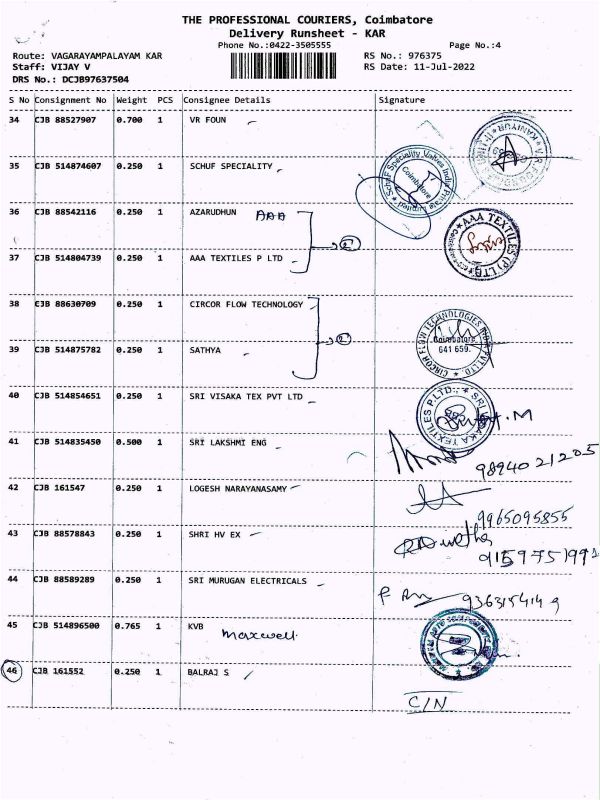 THE PROFESSIONAL COURIERS, Coimbatore
Delivery Runsheet - KAR
Phone No.:0422-3505555 Page No.:4
Route: VAGARAYAMPALAYAM KAR RS No.: 976375
Staff: VIJAY V RS Date: 11-Jul-2022
DRS No.: DCJB97637504
S No Consignment No Weight PCS Consignee Details Signature
34 CJB 88527907 0.700 1 VR FOUN
35 CJB 514874607 0.250 1 SCHUF SPECIALITY
Schuf Speciality Valves India Private Limited
Coimbatore
36 CJB 88542116 0.250 1 AZARUDHUN AAA
AAA TEXTILES (P) LTD
2
37 CJB 514804739 0.250 1 AAA TEXTILES P LTD
38 CJB 88630709 0.250 1 CIRCOR FLOW TECHNOLOGY
2
CIRCOR FLOW TECHNOLOGIES INDIA PVT LTD
Coimbatore
641 659.
39 CJB 514875782 0.250 1 SATHYA
40 CJB 514854651 0.250 1 SRI VISAKA TEX PVT LTD
41 CJB 514835450 0.500 1 SRI LAKSHMI ENG
9894021205
42 CJB 161547 0.250 1 LOGESH NARAYANASAMY
9965095855
43 CJB 88578843 0.250 1 SHRI HV EX
9159751992
44 CJB 88589289 0.250 1 SRI MURUGAN ELECTRICALS
9363154149
45 CJB 514896500 0.765 1 KVB
Maxwell.
46 CJB 161552 0.250 1 BALRAJ S
C/N